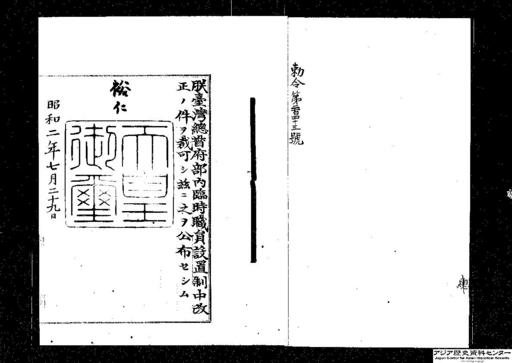 勅令第二百四十三號
朕臺灣總督府部內臨時職員設置制中改
正ノ件ヲ裁可シ茲ニ之ヲ公布セシム
裕仁
天皇
御璽
昭和二年七月二十九日
アジア歴史資料センター
Japan Center for Asian Historical Records